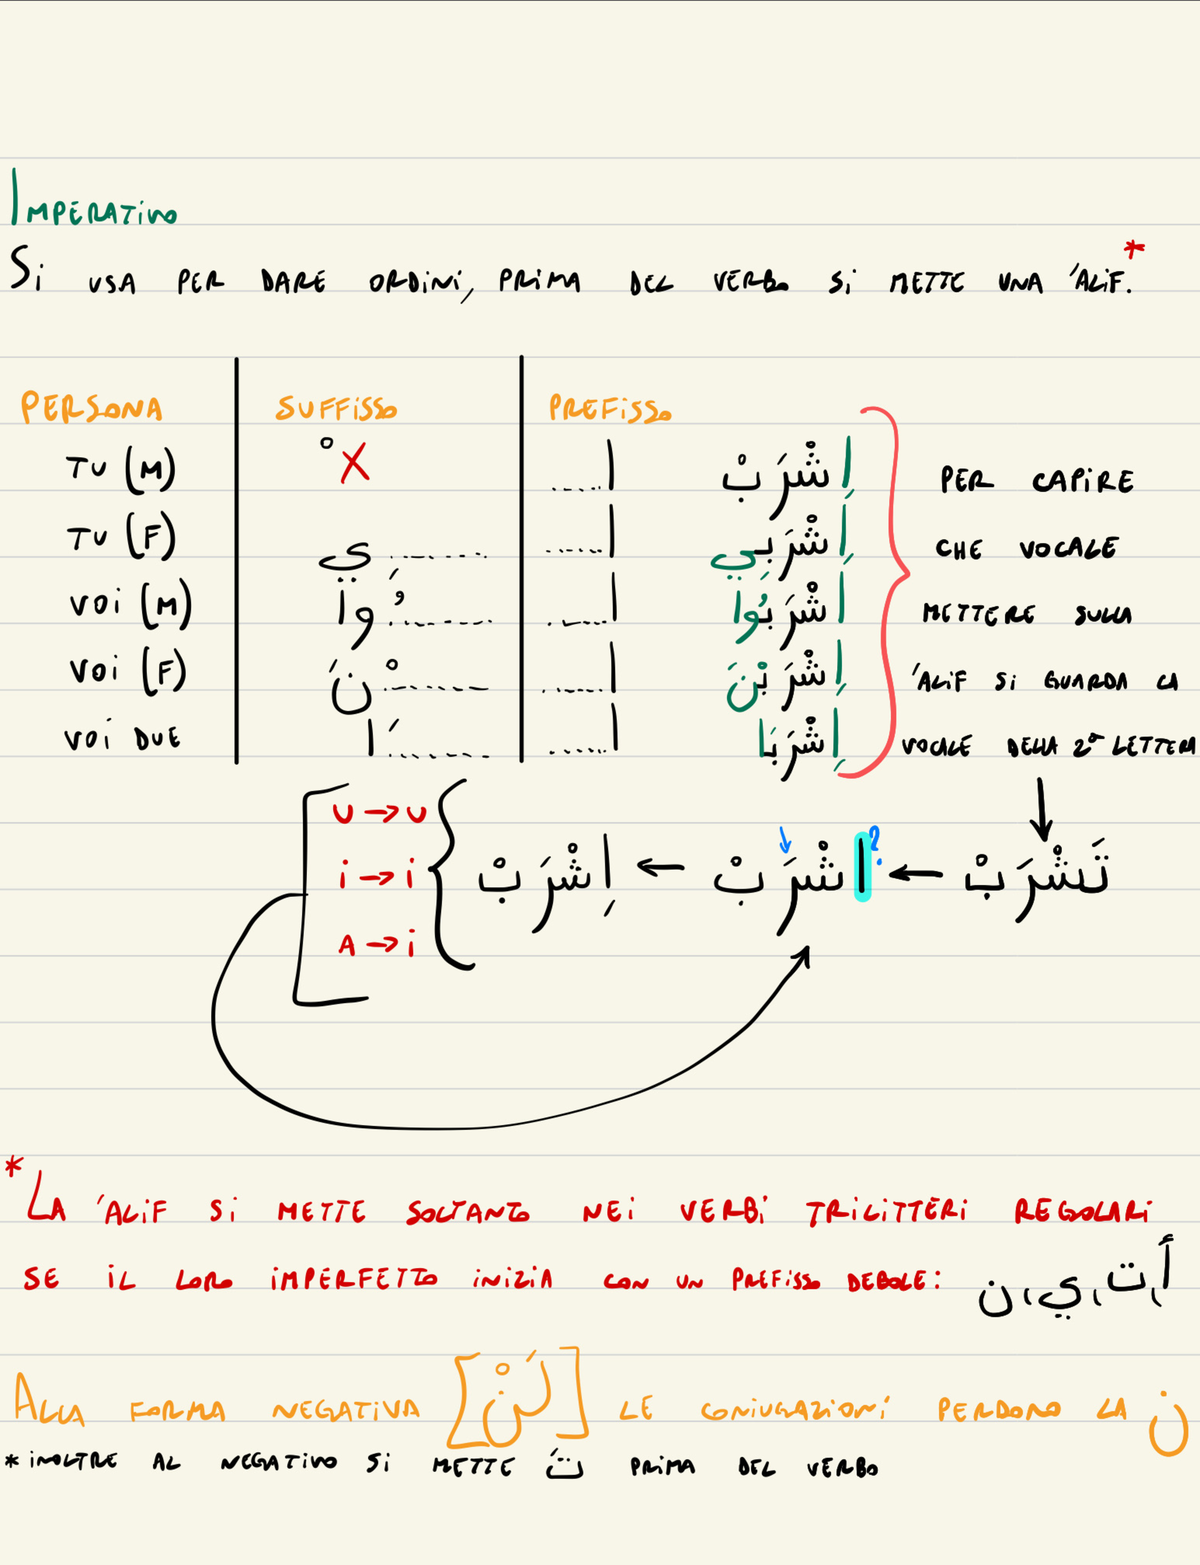 IMPERATIVO
Si USA PER DARE ORDINI, PRIMA DEL VERBO Si METTE UNA 'ALIF.*
PERSONA SUFFISSO PREFISSO
TU (M) ْ X ا..... اِشْرَبْ PER CAPIRE
TU (F) ي......... ا..... اِشْرَبِي CHE VOCALE
VOI (M) ُوا......... ا..... اِشْرَبُوا METTERE SULLA
VOI (F) ْنَ......... ا..... اِشْرَبْنَ 'ALIF SI GUARDA LA
VOI DUE َا......... ا..... اِشْرَبَا VOCALE DELLA 2ª LETTERA
U → U
i → i
A → i
تَشْرَبْ ← ا?شْرَبْ ← اِشْرَبْ
*LA 'ALIF SI METTE SOLTANTO NEI VERBI TRILITTERI REGOLARI
SE IL LORO IMPERFETTO INIZIA CON UN PREFISSO DEBOLE: أ, ت, ي, ن
ALLA FORMA NEGATIVA [لَنْ] LE CONIUGAZIONI PERDONO LA ن
* INOLTRE AL NEGATIVO SI METTE تَ PRIMA DEL VERBO